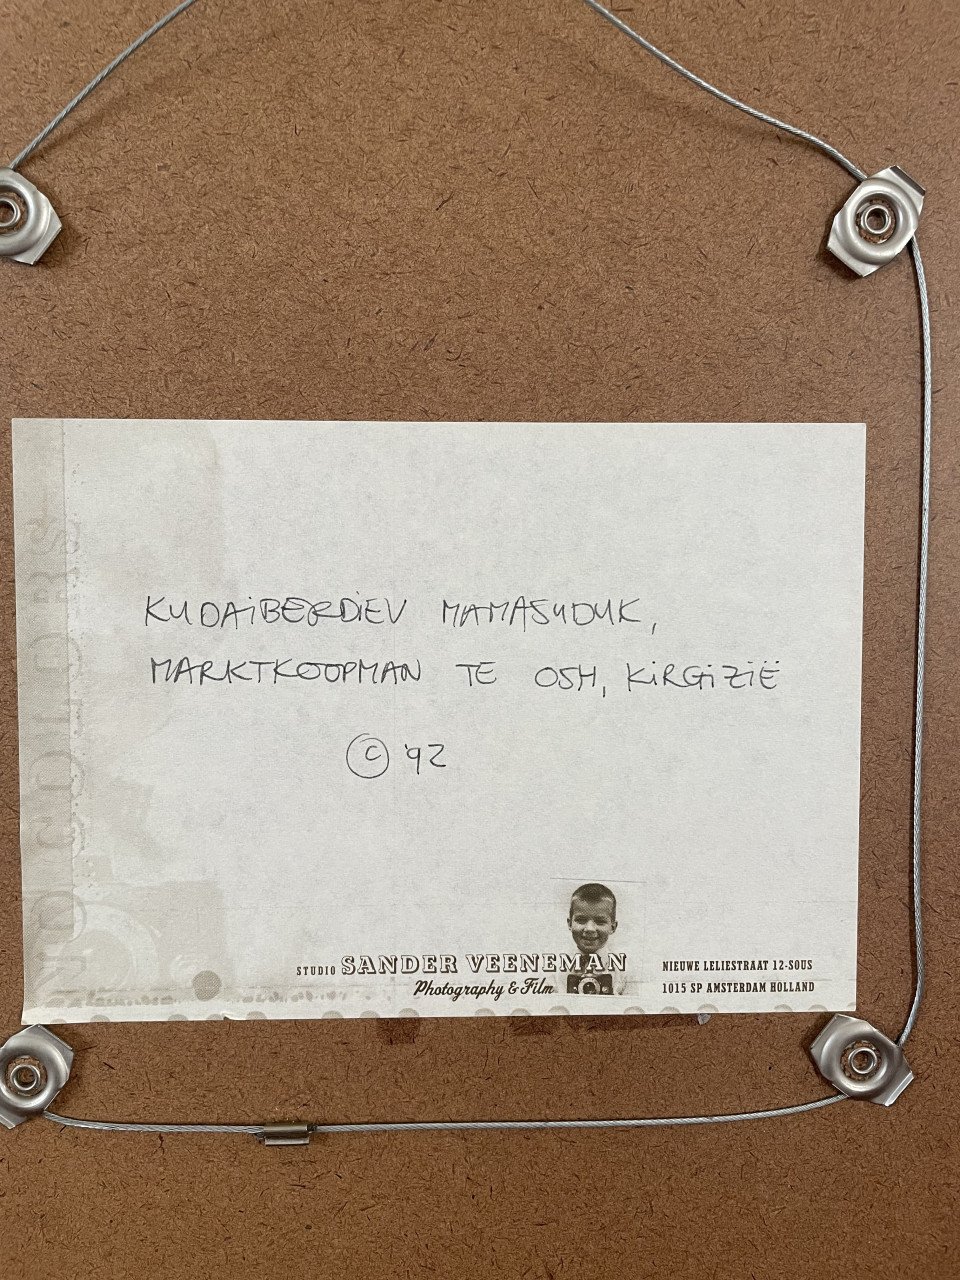 KUDAIBERDIEV MAMASUDUK,
MARKTKOOPMAN TE OSH, KIRGIZIË
© '92
STUDIO SANDER VEENEMAN
Photography & Film
NIEUWE LELIESTRAAT 12-SOUS
1015 SP AMSTERDAM HOLLAND